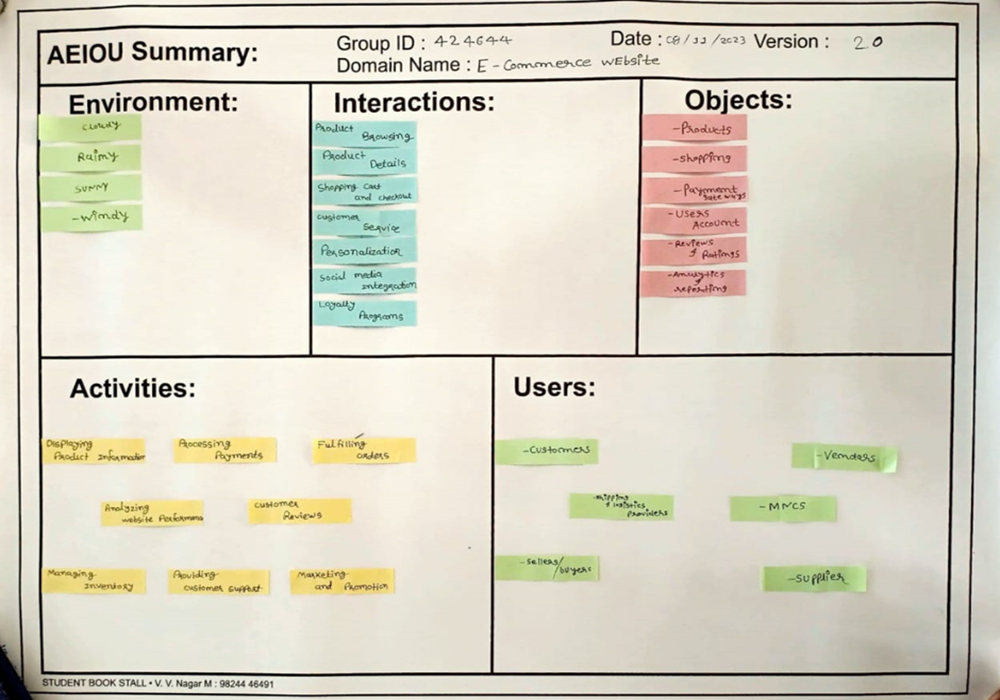 AEIOU Summary:
Group ID : 424644
Date : 08/11/2023 Version : 2.0
Domain Name : E-Commerce WEbsite
Environment:
cloudy
Rainy
sunny
-windy
Interactions:
Product
Browsing
Product
Details
Shopping Cart
and checkout
customer
Service
Personalization
Social media
Integration
Loyalty
Programs
Objects:
-Products
-shopping
-Payment
Gateways
-Users
Account
-Reviews
& Ratings
-Analytics
reporting
Activities:
Displaying
Product Information
Processing
Payments
Fulfilling
orders
Analyzing
website Performans
customer
Reviews
Managing
Inventory
Providing
customer support
Marketing
and Promotion
Users:
-Customers
-Vendors
-shipping
& logistics
Providers
-MNCS
-sellers/
buyers
-supplier
STUDENT BOOK STALL • V. V. Nagar M : 98244 46491